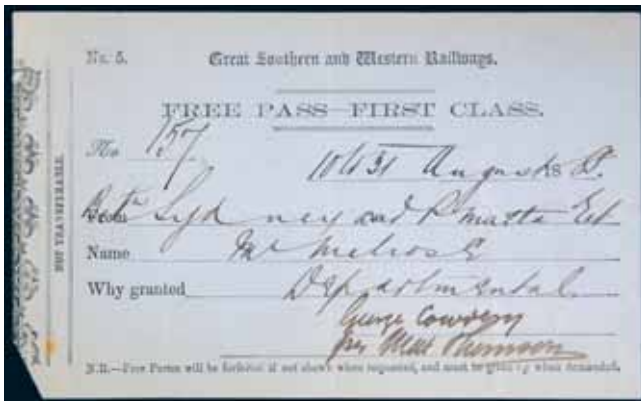 No. 5. Great Southern and Western Railways.
FREE PASS—FIRST CLASS.
No 157
10 to 31 August 18
Sydney and P'matta
Name Mr Melrose
Why granted Departmental
George Cowdery
per Thomson
N.B.—Free Passes will be forfeited if not shown when requested, and must be given up when demanded.
NOT TRANSFERABLE.